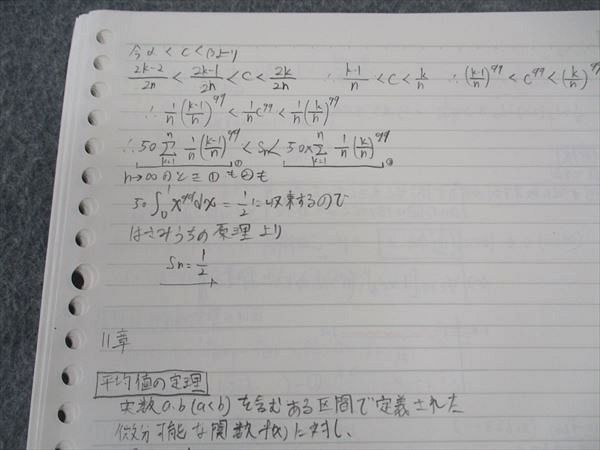 今 α < c < β より
(2k-2)/2n < (2k-1)/2n < c < 2k/2n ∴ (k-1)/n < c < k/n ∴ ((k-1)/n)^99 < c^99 < (k/n)^99
∴ 1/n ((k-1)/n)^99 < 1/n c^99 < 1/n (k/n)^99
∴ 50 Σ_{k=1}^{n} 1/n ((k-1)/n)^99 < Sn < 50× Σ_{k=1}^{n} 1/n (k/n)^99
① ②
n→∞ のとき ① も ② も
50 ∫_0^1 x^99 dx = 1/2 に収束するので
はさみうちの原理より
Sn = 1/2
11章
平均値の定理
実数 a.b (a<b) を含むある区間で定義された
微分可能な関数 f(x) に対し、